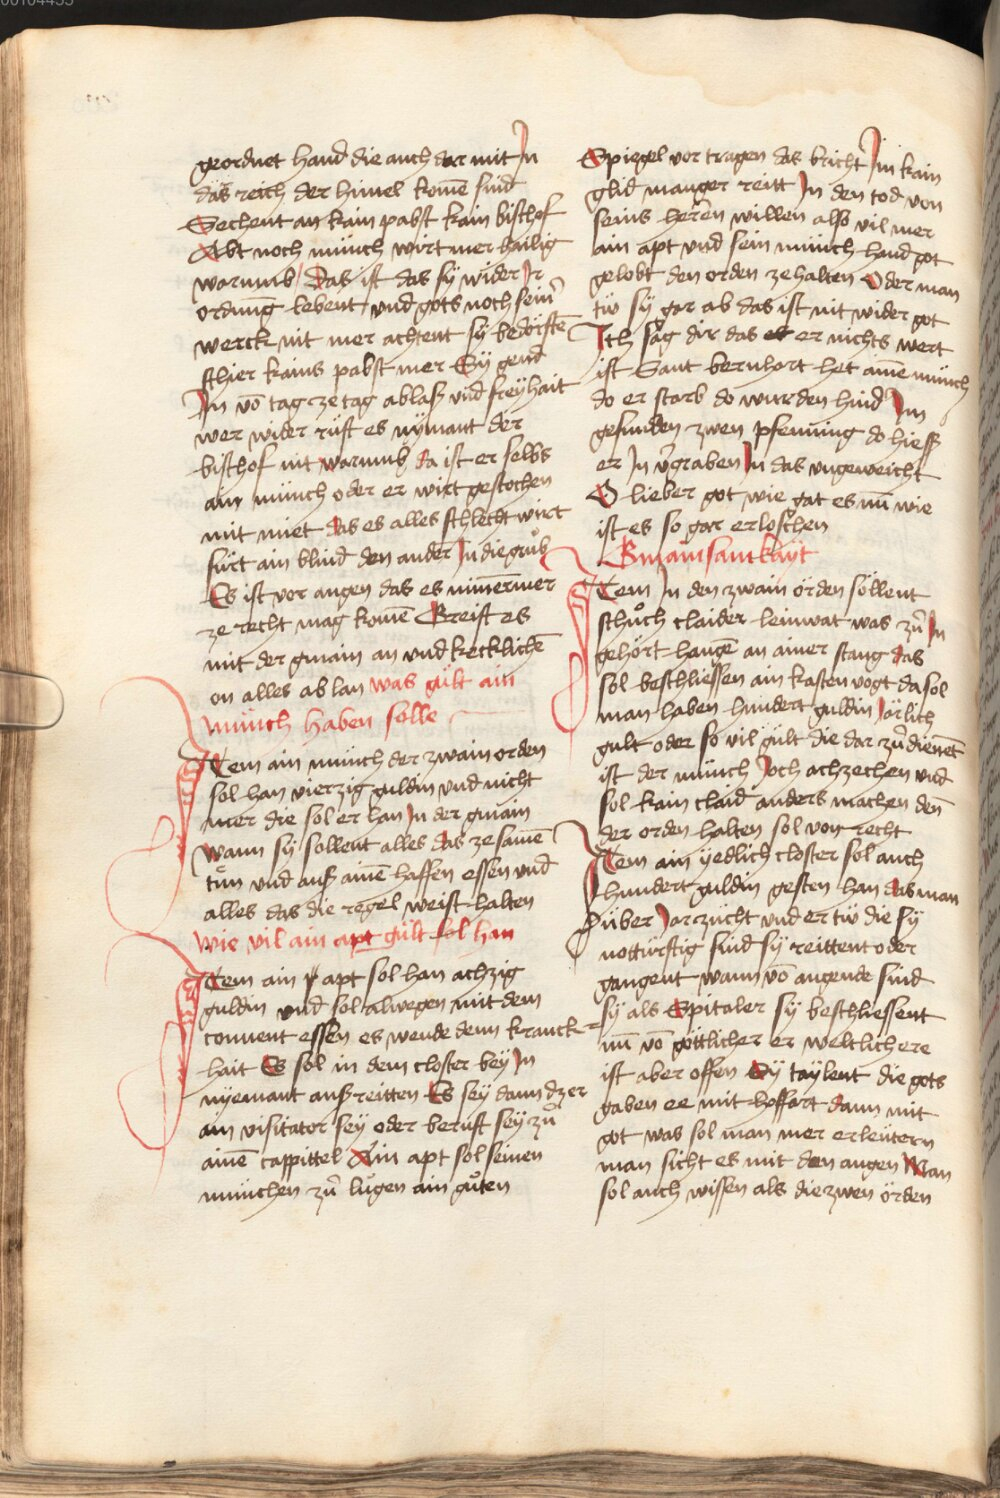 geordnet hand die auch dar mit In
das reich der himel komē sind
Sechent an kain pabst kain bischof
Abt noch münch wirt mer hailig
warumb / Das ist das sÿ wider Ir
ordnūg lebent vnd gots noch seinˀ
werck nit mer achtent sÿ bedörftē
schier kains pabst mer Sÿ gend
In võ tag ze tag ablaß vnd freÿhait
wer wider rüft es nÿmant der
bischof nit warumb da ist er selbs
ain münch oder er wirt gestochen
mit miet das es alles schlecht wirt
fürt ain blind den ander In die grůb
Es ist vor augen das es nimermer
ze recht mag komē Greift es
mit der gmain an vnd kecklichē
on alles ab lan was gült ain
münch haben solle
Item ain münch der zwain orden
sol han vierzig guldin vnd nicht
mer die sol er han In der gmain
wann sÿ sollent alles das ze samē
tůn vnd auß ainē haffen essen vnd
alles das die regel weist halten
wie vil ain apt gült sol han
Item ain apt sol han achzig
guldin vnd sol alwegen mit dem
conuent essen es wende denn kranck
hait Es sol in dem closter beÿ In
nÿemant auß reitten Es seÿ dann dz er
ain visitator seÿ oder beruft seÿ zů
ainē cappittel Ain apt sol seinen
münchen zů lůgen ain gůten
Spiegel vor tragen das bricht Im kain
glid manger reitt In den tod von
seins herēn willen also vil mer
ain apt vnd sein münch hand got
gelobt den orden ze halten Oder man
tü sÿ gar ab das ist nit wider got
Ich sag dir das er nichts wert
ist Sant bernhart het ainē münch
do er starb do wurden hind Im
gefunden zwen pfenning do hieß
er In v̄graben In das vngeweicht
O lieber got wie gat es nū wie
ist es so gar erloschen
Gmainsamkaÿt
Item In den zwain örden söllent
schůch claider leinwat was zů In
gehört hangē an ainer stang das
sol beschliessen ain kasten vogt da sol
man haben hundert guldin Järlich
gült oder so vil gült die dar zů dienet
ist der münch Joch achzechen vnd
sol kain claid anders machen den̄
der orden halten sol von recht
Item ain ÿedlich closter sol auch
hundert guldin gesten han das man
über Jar zücht vnd er tü die sÿ
notturftig sind sÿ reittent oder
gangent wann võ augende sind
sÿ als Spitaler sÿ beschliessent
nū võ göttlicher er weltlich ere
ist aber offen Sÿ taÿlent die gots
gaben ee mit hoffart dann mit
got was sol man mer erleütern
man sicht es mit den augen Man
sol auch wissen als die zwen örden